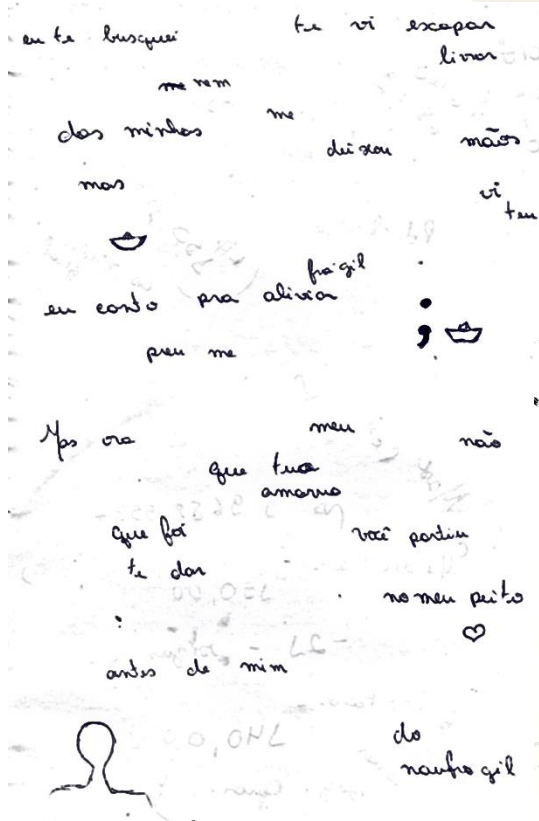 eu te busquei
te vi escapar
livrar
me nem
me
das minhas
deixou
mãos
mas
vi
teu
frágil
eu canto pra aliviar
;
preu me
Mas ora
meu
não
que tua
amarva
que foi
você partiu
te dar
no meu peito
antes de mim
do
naufragil